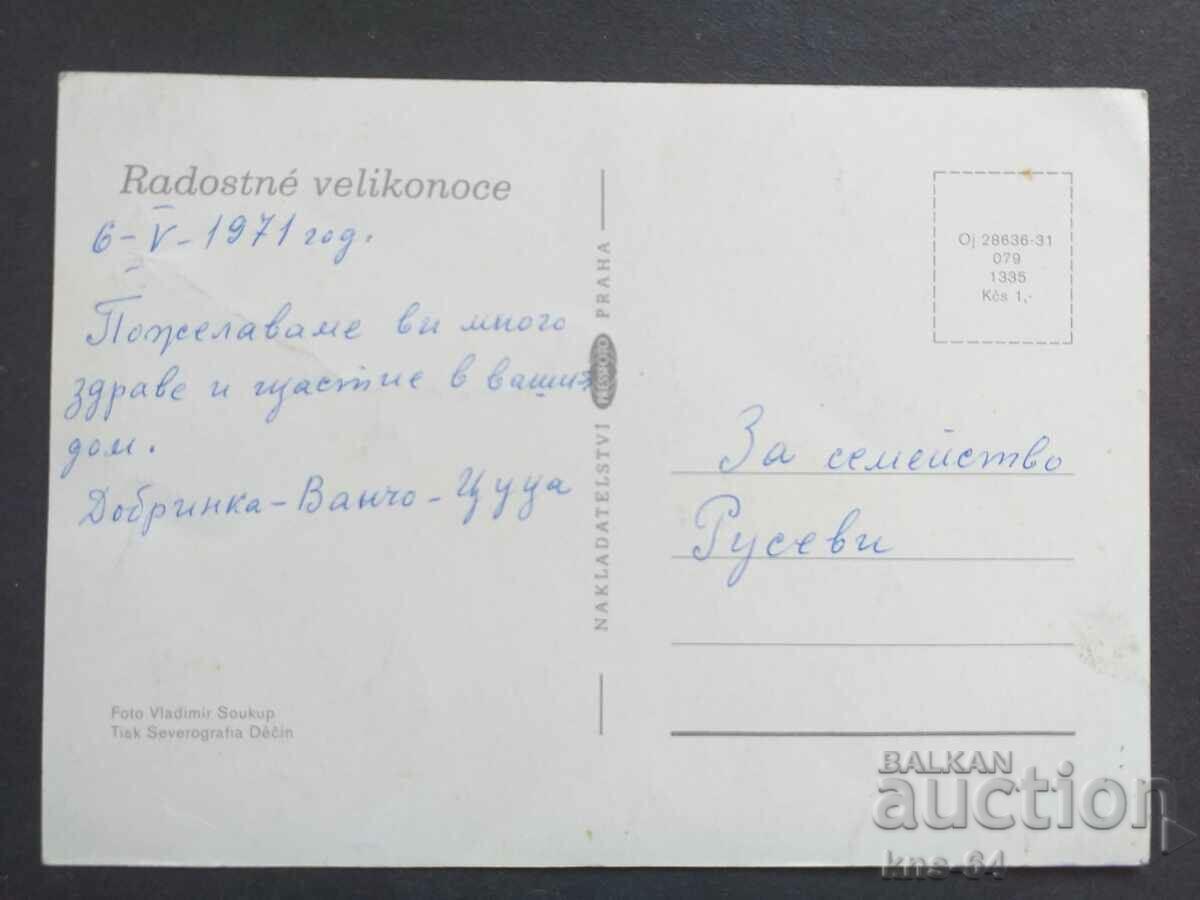 Radostné velikonoce
6-V-1971 год.
Пожелаваме ви много
здраве и щастие в вашия
дом.
Добринка-Ванчо-Цуца
Foto Vladimir Soukup
Tisk Severografia Děčín
NAKLADATELSTVÍ PRESSFOTO PRAHA
Oj 28636-31
079
1335
Kčs 1,-
За семейство
Русеви
BALKAN
auction
kns-64